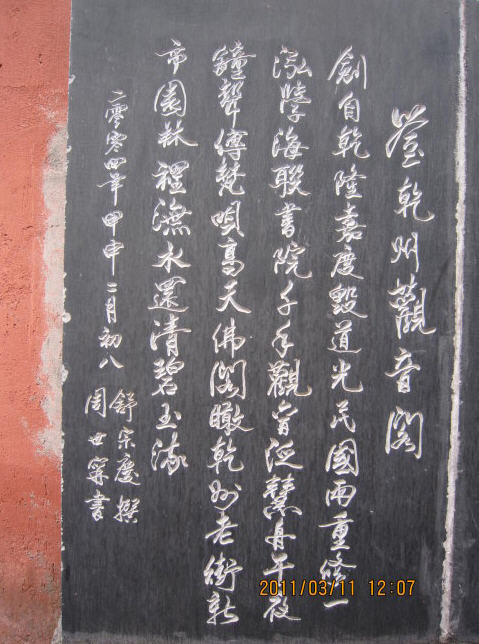 登乾州觀音閣
創自乾隆嘉慶毀道光民國兩重修一
泓學海聯書院千手觀音泛慧舟午夜
鐘聲傳梵唄高天佛閣瞰乾州老街新
市園林裡潕水還清碧玉流
二零零四年甲申二月初八
舒宗慶撰
周世書
2011/03/11 12:07